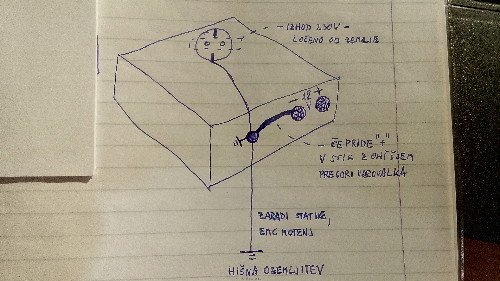 IZHOD 230V
LOČENO OD ZEMLJE
- 12 +
V
ČE PRIDE "+"
V STIK Z OHIŠJEM
PREGORI VAROVALKA
ZARADI STATIKE,
EMC MOTENJ
HIŠNA OZEMLJITEV